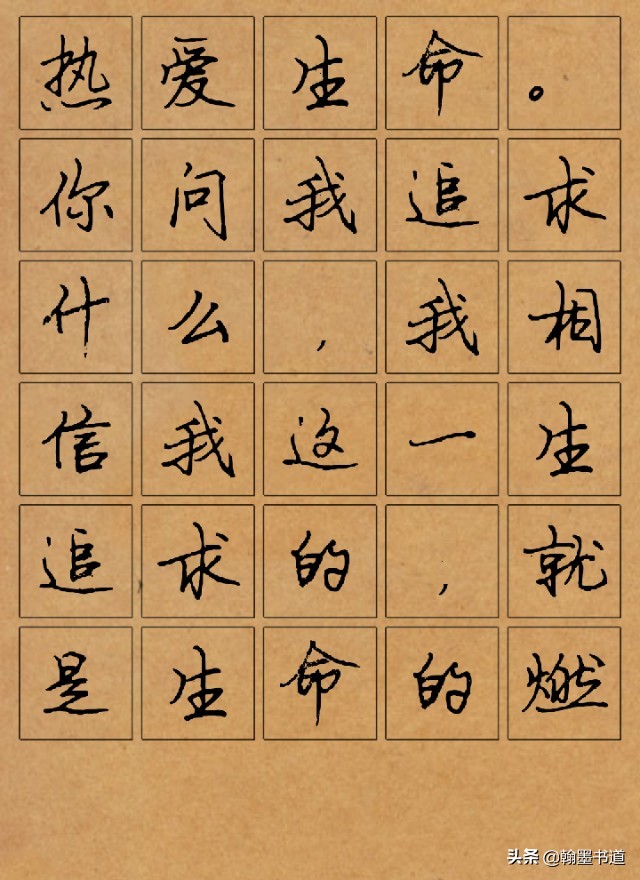 热爱生命。
你问我追求
什么,我相
信我这一生
追求的,就
是生命的燃
头条 @翰墨书道